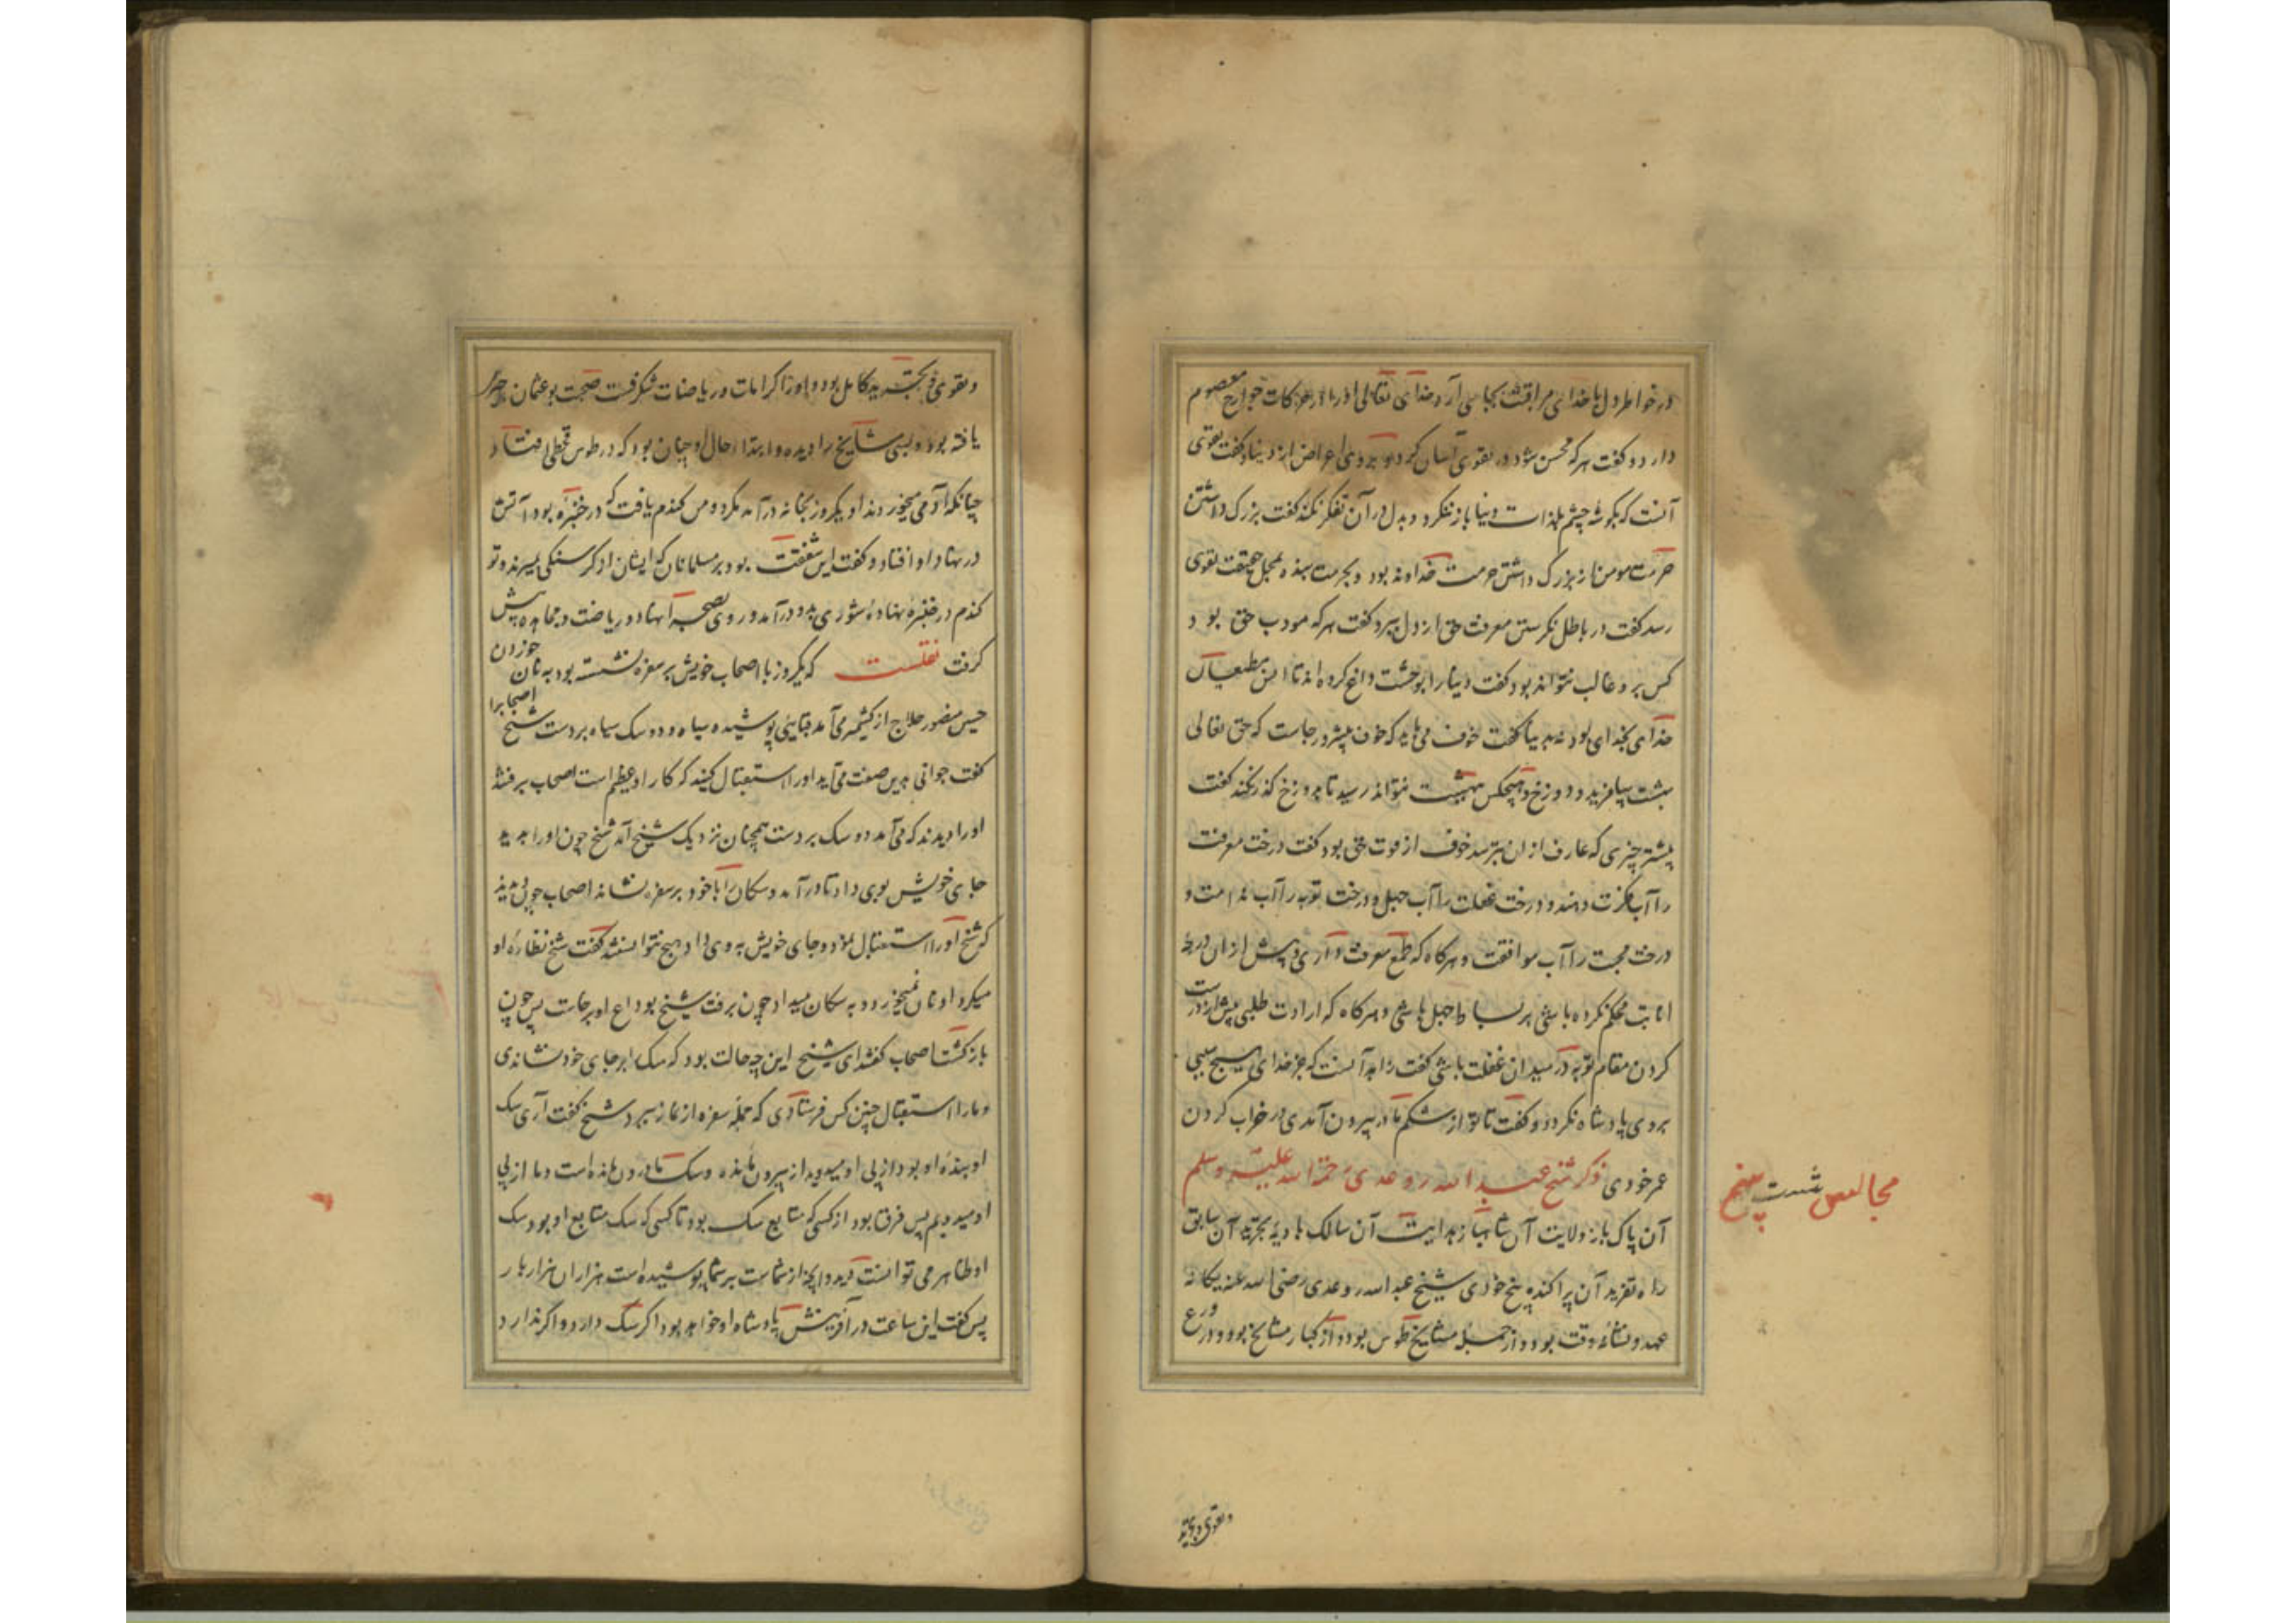 در خواطر دل با خدای مراقبت بجای آرد خدای تعالی او را در حرکات جوارح معصوم
دارد و گفت هرکه محسن شود در تقوی آسان گردد بر وی اعراض از دنیا و گفت تقوی
آنست که بگوشه چشم بلذات دنیا باز ننگرد و بدل در آن تفکر نکند گفت بزرگ داشتن
حرمت مومنان از بزرگ داشتن حرمت خداوند بود و بحرمت بنده بمحل حقیقت تقوی
رسد گفت در باطل نگرستن معرفت حق از دل ببرد گفت هرکه مودب حق بود
کس برو غالب نتواند بود گفت دنیا را بوحشت داغ کرده اند تا انس مطیعان
خدای بخدای بود نه بدنیا گفت خوف می باید که خوف پیشرو رجاست که حق تعالی
بهشت بیافرید و دوزخ و هیچکس ببهشت نتواند رسید تا بدوزخ گذر نکند گفت
بیشتر چیزی که عارف از آن بترسد خوف از فوت حق بود گفت درخت معرفت
را آب فکرت دهند و درخت غفلت را آب جهل و درخت توبه را آب ندامت و
درخت محبت را آب موافقت و هرگاه که طمع معرفت داری و پیش از آن درجه
انابت محکم نکرده باشی بر بساط جهل باشی و هرگاه که ارادت طلبی پیش از درست
کردن مقام توبه در میدان غفلت باشی گفت زاهد آنست که جز خدای هیچ سببی
بر وی پادشاه نگردد و گفت تا تو از شکم مادر بیرون آمدی در خراب کردن
عمر خودی ذکر شیخ عبد الله روغدی رحمة الله علیه وسلم
مجالس شصت پنج
آن پاک باز ولایت آن شاهباز هدایت آن سالک بادیه تجرید آن سابق
راه تفرید آن پراکنده بیخ خودی شیخ عبد الله روغدی رضی الله عنه یگانه
عهد و نشانه وقت بود و از جمله مشایخ طوس بود و از کبار مشایخ بود و در ورع
و تقوی و تجرید
و تقوی و تجرید کامل بود و او را کرامات و ریاضات شگرفست صحبت بوعثمان حیری
یافته بود و بسی مشایخ را دیده و ابتداء حال او چنان بود که در طوس قحطی افتاد
چنانکه آدمی میخوردند او یکروز بخانه درآمد مگر دو من گندم یافت که در خنبره بود آتش
در نهاد او افتاد و گفت این شفقت بود بر مسلمانان که ایشان از گرسنگی بمیرند و تو
گندم در خنبره نهاده شوری بدو درآمد و روی بصحرا نهاد و ریاضت و مجاهده پیش
گرفت نقلست که یکروز با اصحاب خویش بر سفره نشسته بود به نان خوردن
حسین منصور حلاج از کشمیر می آمد قبایی پوشیده سیاه و دو سگ سیاه بر دست شیخ اصحابرا
گفت جوانی بدین صفت می آید او را استقبال کنید که کار او عظیم است اصحاب برفتند
او را دیدند که می آمد دو سگ بر دست همچنان نزدیک شیخ آمد شیخ چون او را بدید
جای خویش بوی داد تا درآمد و سگان را با خود بر سفره نشاند اصحاب چون بدیدند
که شیخ او را استقبال نمود و جای خویش به وی داد هیچ نتوانستند گفت شیخ نظاره او
میکرد او نان میخورد و به سگان میداد چون برفت شیخ بوداع او برخاست پس چون
بازگشت اصحاب گفتند ای شیخ این چه حالت بود که سگ را بر جای خود نشاندی
و ما را استقبال چنین کس فرستادی که جمله سفره از نماز ببرد شیخ گفت آری سگ
او بنده او بود از پی او میدوید از بیرون مانده و سگ ما درون مانده است و ما از پی
او میدویم پس فرق بود از کسی که متابع سگ بود تا کسی که سگ متابع او بود سگ
او ظاهر می توانست دید و اینک از شماست بر شما پوشیده است هزاران هزار بار
پس گفت این ساعت در آفرینش پادشاه او خواهد بود اگر سگ دارد و اگر ندارد